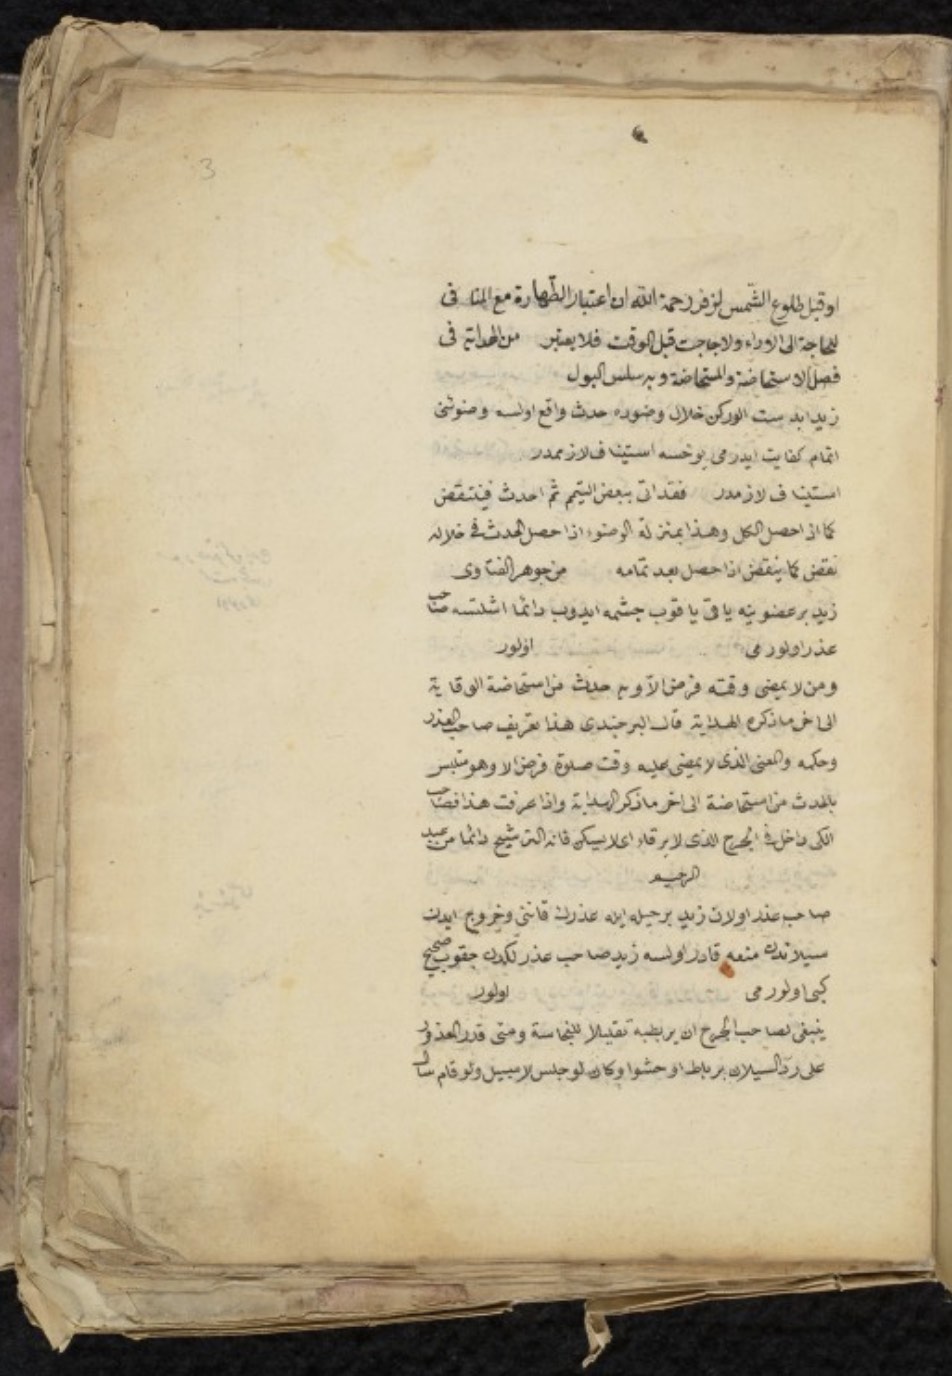 3
او قبل طلوع الشّمس لزفر رحمة اللّه ان اعتبار الطّهارة مع المنا فى
للحاجة الى الاداء ولا حاجت قبل الوقت فلا يعتبر من الهداية فى
فصل الاستحاضة والمستحاضة وبه سلس البول
زيد ابدست الوركن خلال وضوده حدث واقع اولسه وضوئنى
اتمام كفايت ايدر مى يوخسه استينا ف لازمدر
استينا ف لازمدر فقد اتى ببعض التيمم ثم احدث فينتقض
كما اذا حصل الكل وهذا بمنزلة الوضوء اذا حصل الحدث فى خلاله
نقض كما ينقض اذا حصل بعد تمامه من جوهر الفتاوى
زيد بر عضوينه ياقى ياقوب چشمه ايدوب دائما اشلتسه صاحب
عذر اولور مى اولور
ومن لا يمضى وقته فرض الا وبه حدث من استحاضة الوقاية
الى اخر ما ذكره الهداية قال البرجندى هذا تعريف صاحب العذر
وحكمه والمعنى الذى لا يمضى عليه وقت صلوة فرض الا وهو متلبس
بالحدث من استحاضة الى اخر ما ذكر الهداية واذا عرفت هذا فصاحب
الكى داخل فى الجرح الذى لا يرقاء اى لا يسكن فانه دائما من عبد
الرحيم
صاحب عذر اولان زيد بر حيله ايله عذرك قاننى وخروج ايدن
سيلاندن منعه قادر اولسه زيد صاحب عذر لكدن چقوب صحيح
كبى اولور مى اولور
ينبغى لصاحب الجرح ان يربطه تقليلا للنجاسة ومتى قدر المعذور
على ردّ السيلان برباط او حشوا وكان لو جلس لا يسيل ولو قام سال